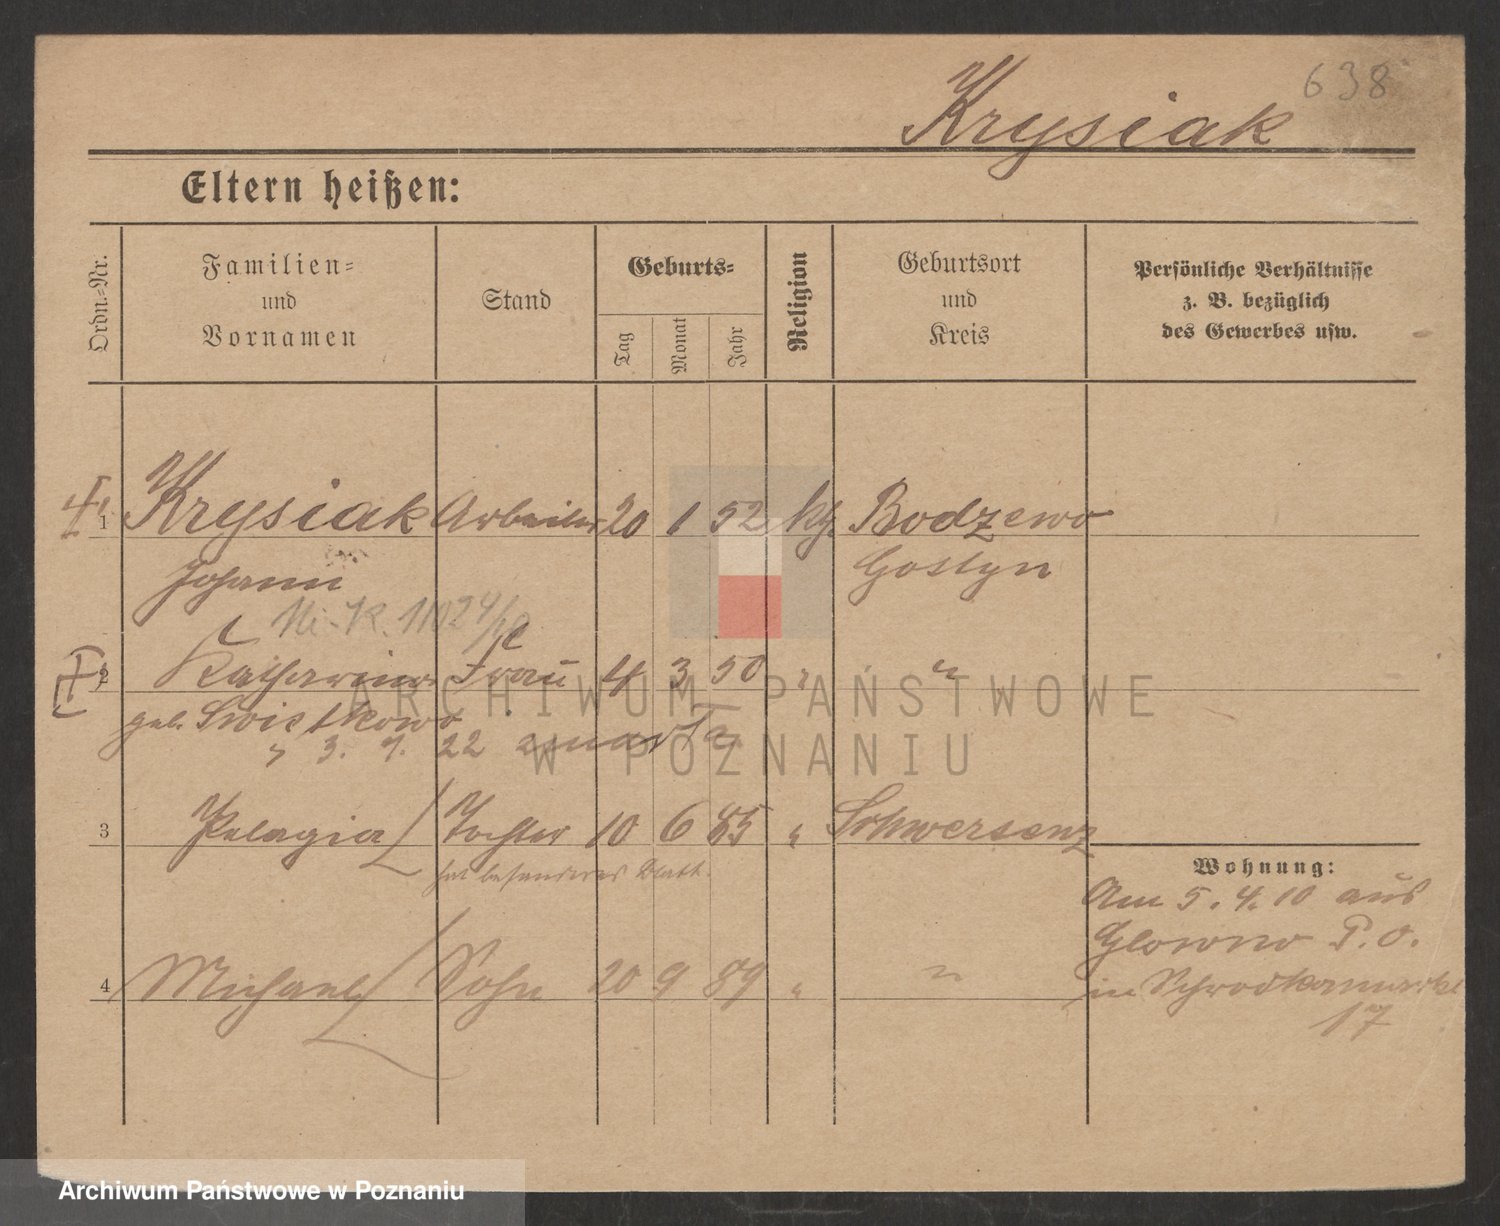 638
Krysiak
Eltern heißen:
Ordn.-Nr.
Familien-
und
Vornamen
Stand
Geburts-
Tag
Monat
Jahr
Religion
Geburtsort
und
Kreis
Persönliche Verhältnisse
z. B. bezüglich
des Gewerbes usw.
1 Krysiak Arbeiter 20 1 52 kth. Bodzewo
Johann Gostyn
2 Katharina Frau 4 3 50 " "
geb.
3. 1. 22 zmarła
3 Pelagia Tochter 10 6 85 " Schwersenz
hat besonderes Blatt.
Wohnung:
Am 5. 4. 10 aus
Glowno P. O.
4 Michael Sohn 20 9 89 " "
in Schrodkamarkt
17
ARCHIWUM PAŃSTWOWE
W POZNANIU
Archiwum Państwowe w Poznaniu